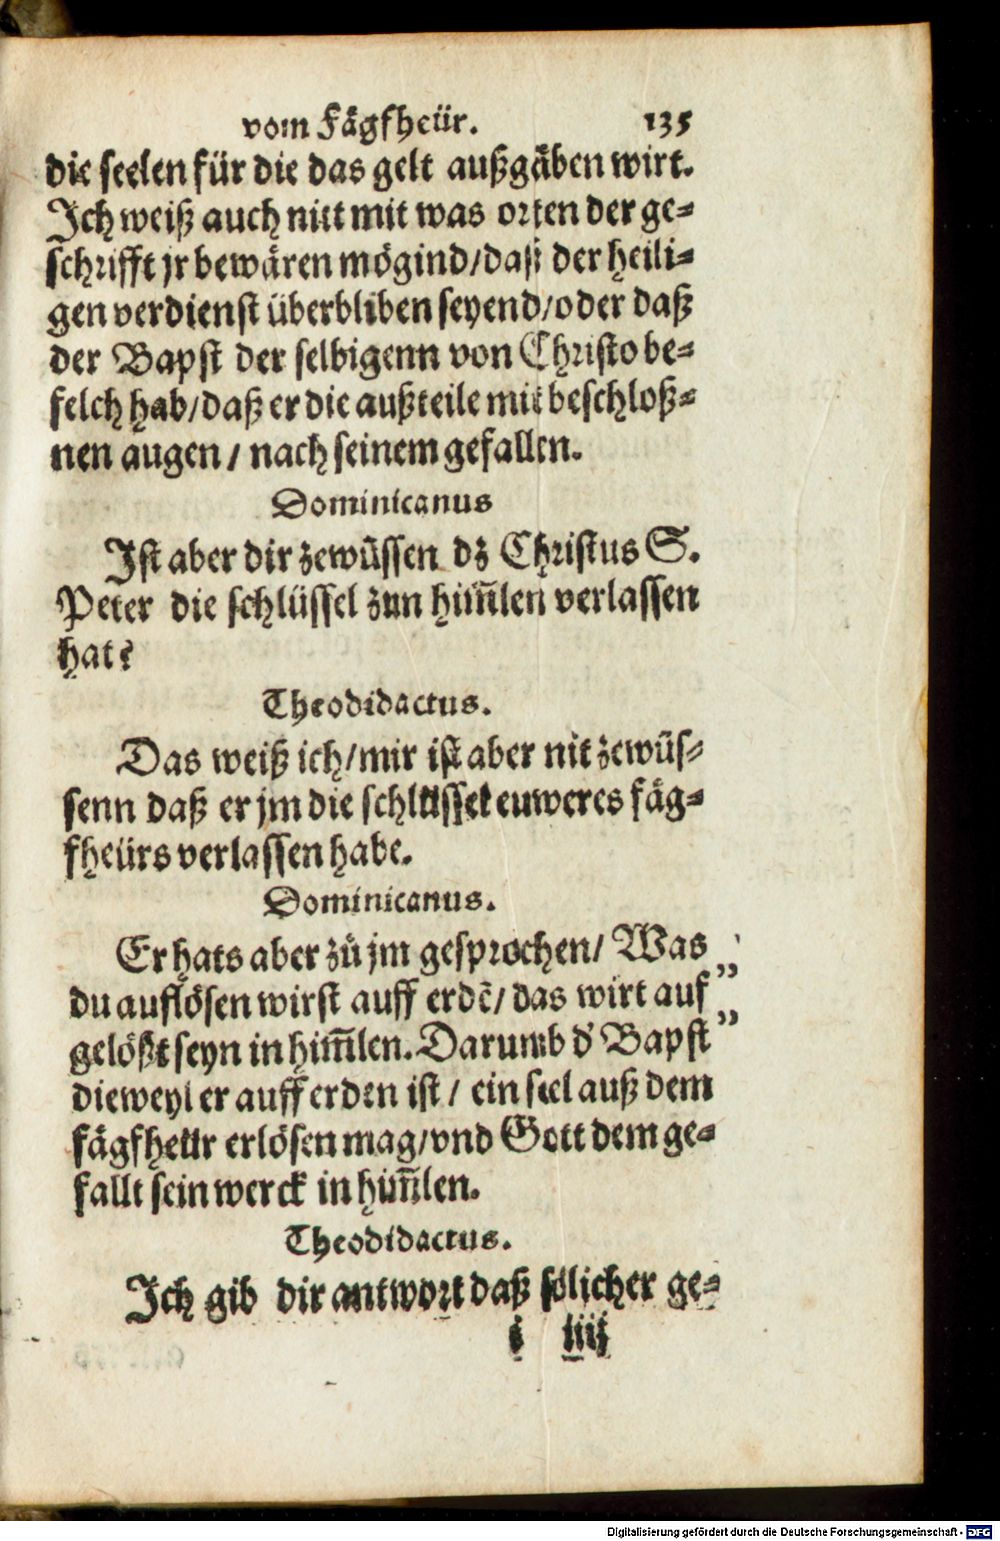 vom Fägfheür. 135
die seelen für die das gelt außgäben wirt.
Ich weiß auch nitt mit was orten der ge⸗
schrifft jr bewären mögind/daß der heili⸗
gen verdienst überbliben seyend/oder daß
der Bapst der selbigenn von Christo be⸗
felch hab/daß er die außteile mit beschloß⸗
nen augen/ nach seinem gefallen.
Dominicanus
Ist aber dir zewüssen dz Christus S.
Peter die schlüssel zun him̃len verlassen
hat?
Theodidactus.
Das weiß ich/mir ist aber nit zewüs⸗
senn daß er jm die schlüssel euweres fäg⸗
fheürs verlassen habe.
Dominicanus.
Er hats aber zů jm gesprochen/ Was
du auflösen wirst auff erdẽ/ das wirt auf „
gelößt seyn in him̃len. Darumb d' Bapst „
dieweyl er auff erden ist/ ein seel auß dem
fägfheür erlösen mag/vnd Gott dem ge⸗
fallt sein werck in him̃len.
Theodidactus.
Ich gib dir antwort daß sölicher ge⸗
i iiij
Digitalisierung gefördert durch die Deutsche Forschungsgemeinschaft - DFG